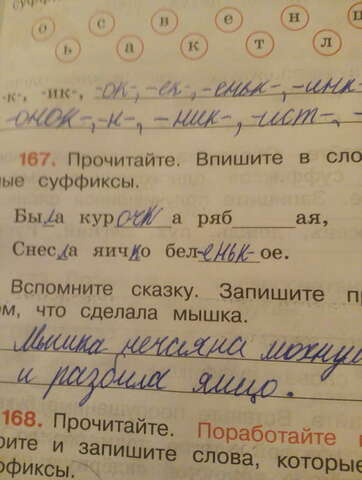 суффиксы
о с в е н ц
ь а к т л
-к-, -ик-, -ок-, -ек-, -еньк-, -инк-
-онок-, -н-, -ник-, -ист-, -
167. Прочитайте. Впишите в сло
ные суффиксы.
Была курочка ряб ая,
Снесла яичко бел-еньк-ое.
Вспомните сказку. Запишите пр
ом, что сделала мышка.
Мышка нечаяна махнул
и разбила яицо.
168. Прочитайте. Поработайте
рите и запишите слова, которые
ффиксы.